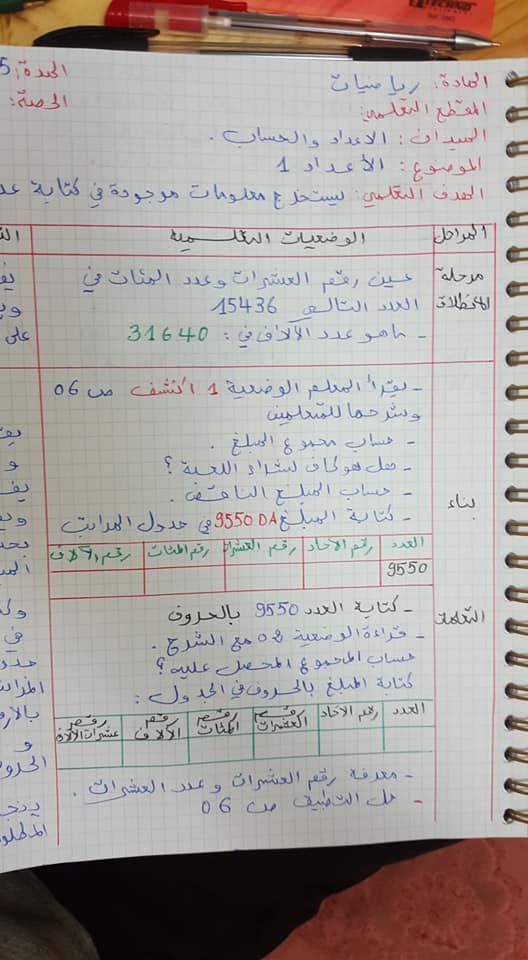 TECHNO
المادة: رياضيات
المدة: 5
المقطع التعلمي:
الحصة:
الميدان: الأعداد والحساب.
الموضوع: الأعداد 1
الهدف التعلمي: يستخرج معلومات موجودة في كتابة عد
المراحل
الوضعيات التعلمية
مرحلة الانطلاق
عين رقم العشرات وعدد المئات في
العدد التالي 15436
- ماهو عدد الآلاف في: 31640
بناء
التعلمات
- يقرأ المعلم الوضعية 1 أكتشف ص 06
ويشرحها للمتعلمين
- حساب مجموع المبلغ.
- هل هو كاف لشراء اللعبة؟
- حساب المبلغ الناقص.
- كتابة المبلغ 9550DA في جدول المراتب
العدد رقم الآحاد رقم العشرات رقم المئات رقم الآلاف
9550
- كتابة العدد 9550 بالحروف
- قراءة الوضعية 02 مع الشرح.
حساب المجموع المحصل عليه؟
كتابة المبلغ بالحروف في الجدول:
العدد رقم الآحاد رقم العشرات رقم المئات رقم الآلاف رقم عشرات الآلاف
- معرفة رقم العشرات وعدد العشرات.
- حل التطبيق ص 06